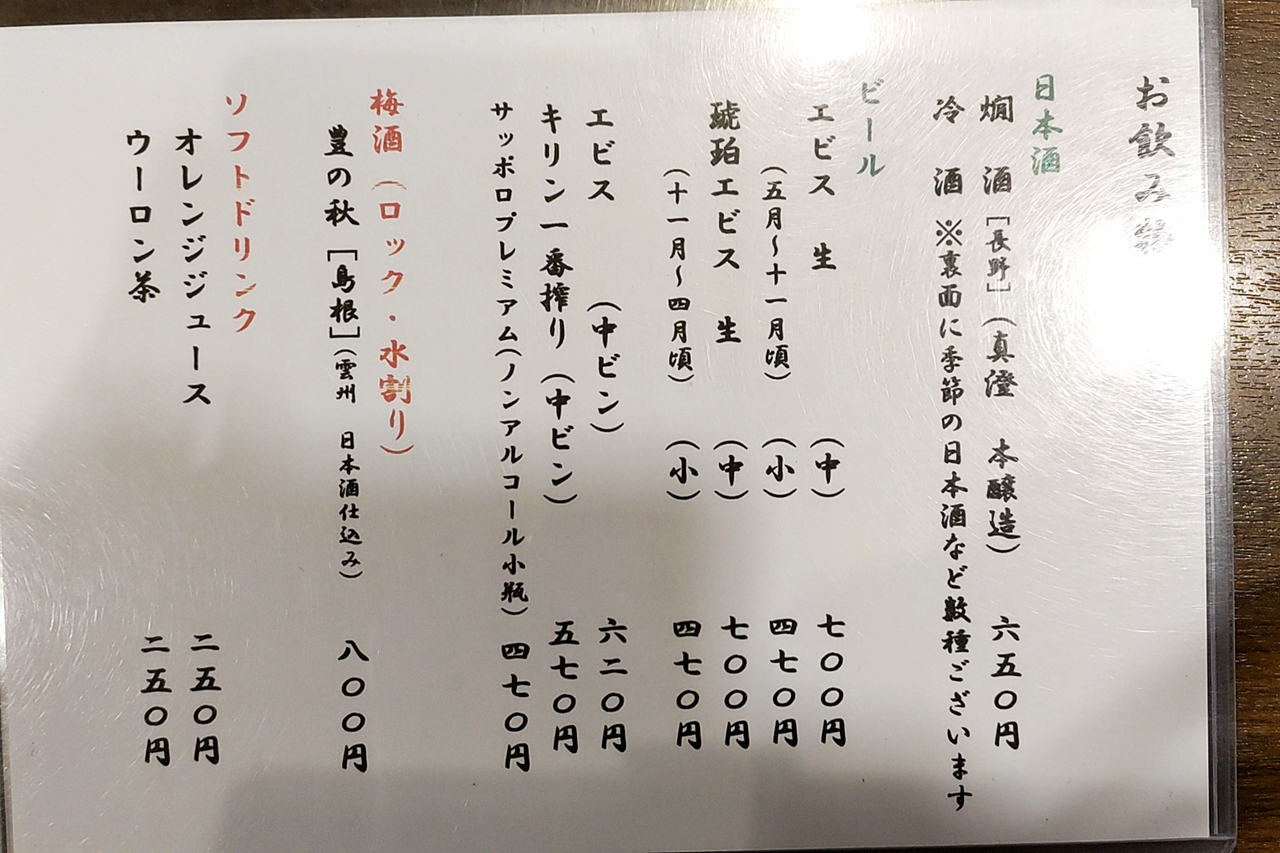 お飲み物
日本酒
燗 酒 [長野] (真澄 本醸造) 六五〇円
冷 酒 ※裏面に季節の日本酒など数種ございます
ビール
エビス 生 (中) 七〇〇円
(五月~十一月頃) (小) 四七〇円
琥珀エビス 生 (中) 七〇〇円
(十一月~四月頃) (小) 四七〇円
エビス (中ビン) 六二〇円
キリン一番搾り (中ビン) 五七〇円
サッポロプレミアム(ノンアルコール小瓶) 四七〇円
梅酒 (ロック・水割り)
豊の秋 [島根] (雲州 日本酒仕込み) 八〇〇円
ソフトドリンク
オレンジジュース 二五〇円
ウーロン茶 二五〇円